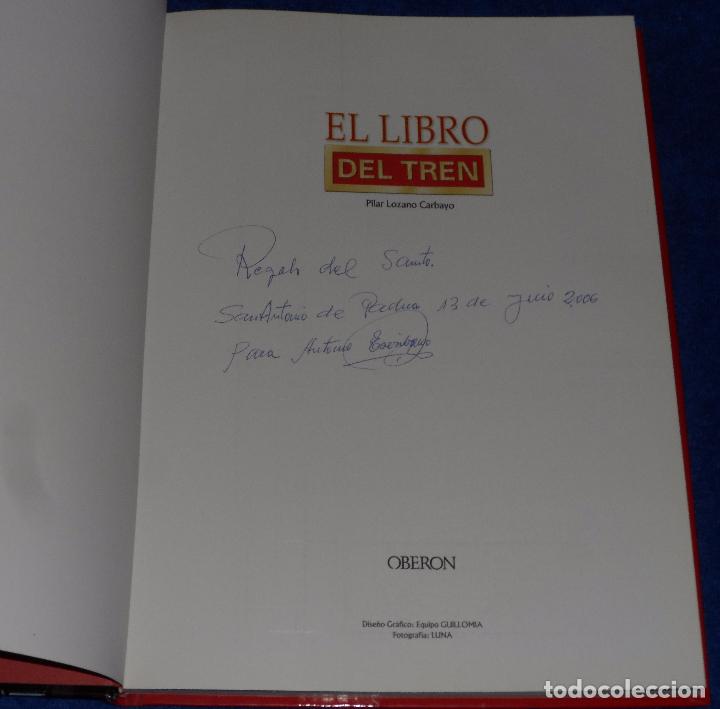 EL LIBRO
DEL TREN
Pilar Lozano Carbayo
Regalo del Santo.
San Antonio de Padua 13 de Junio 2,006
Para Antonio
OBERON
Diseño Gráfico: Equipo GUILLOMIA
Fotografía: LUNA
todocoleccion.net